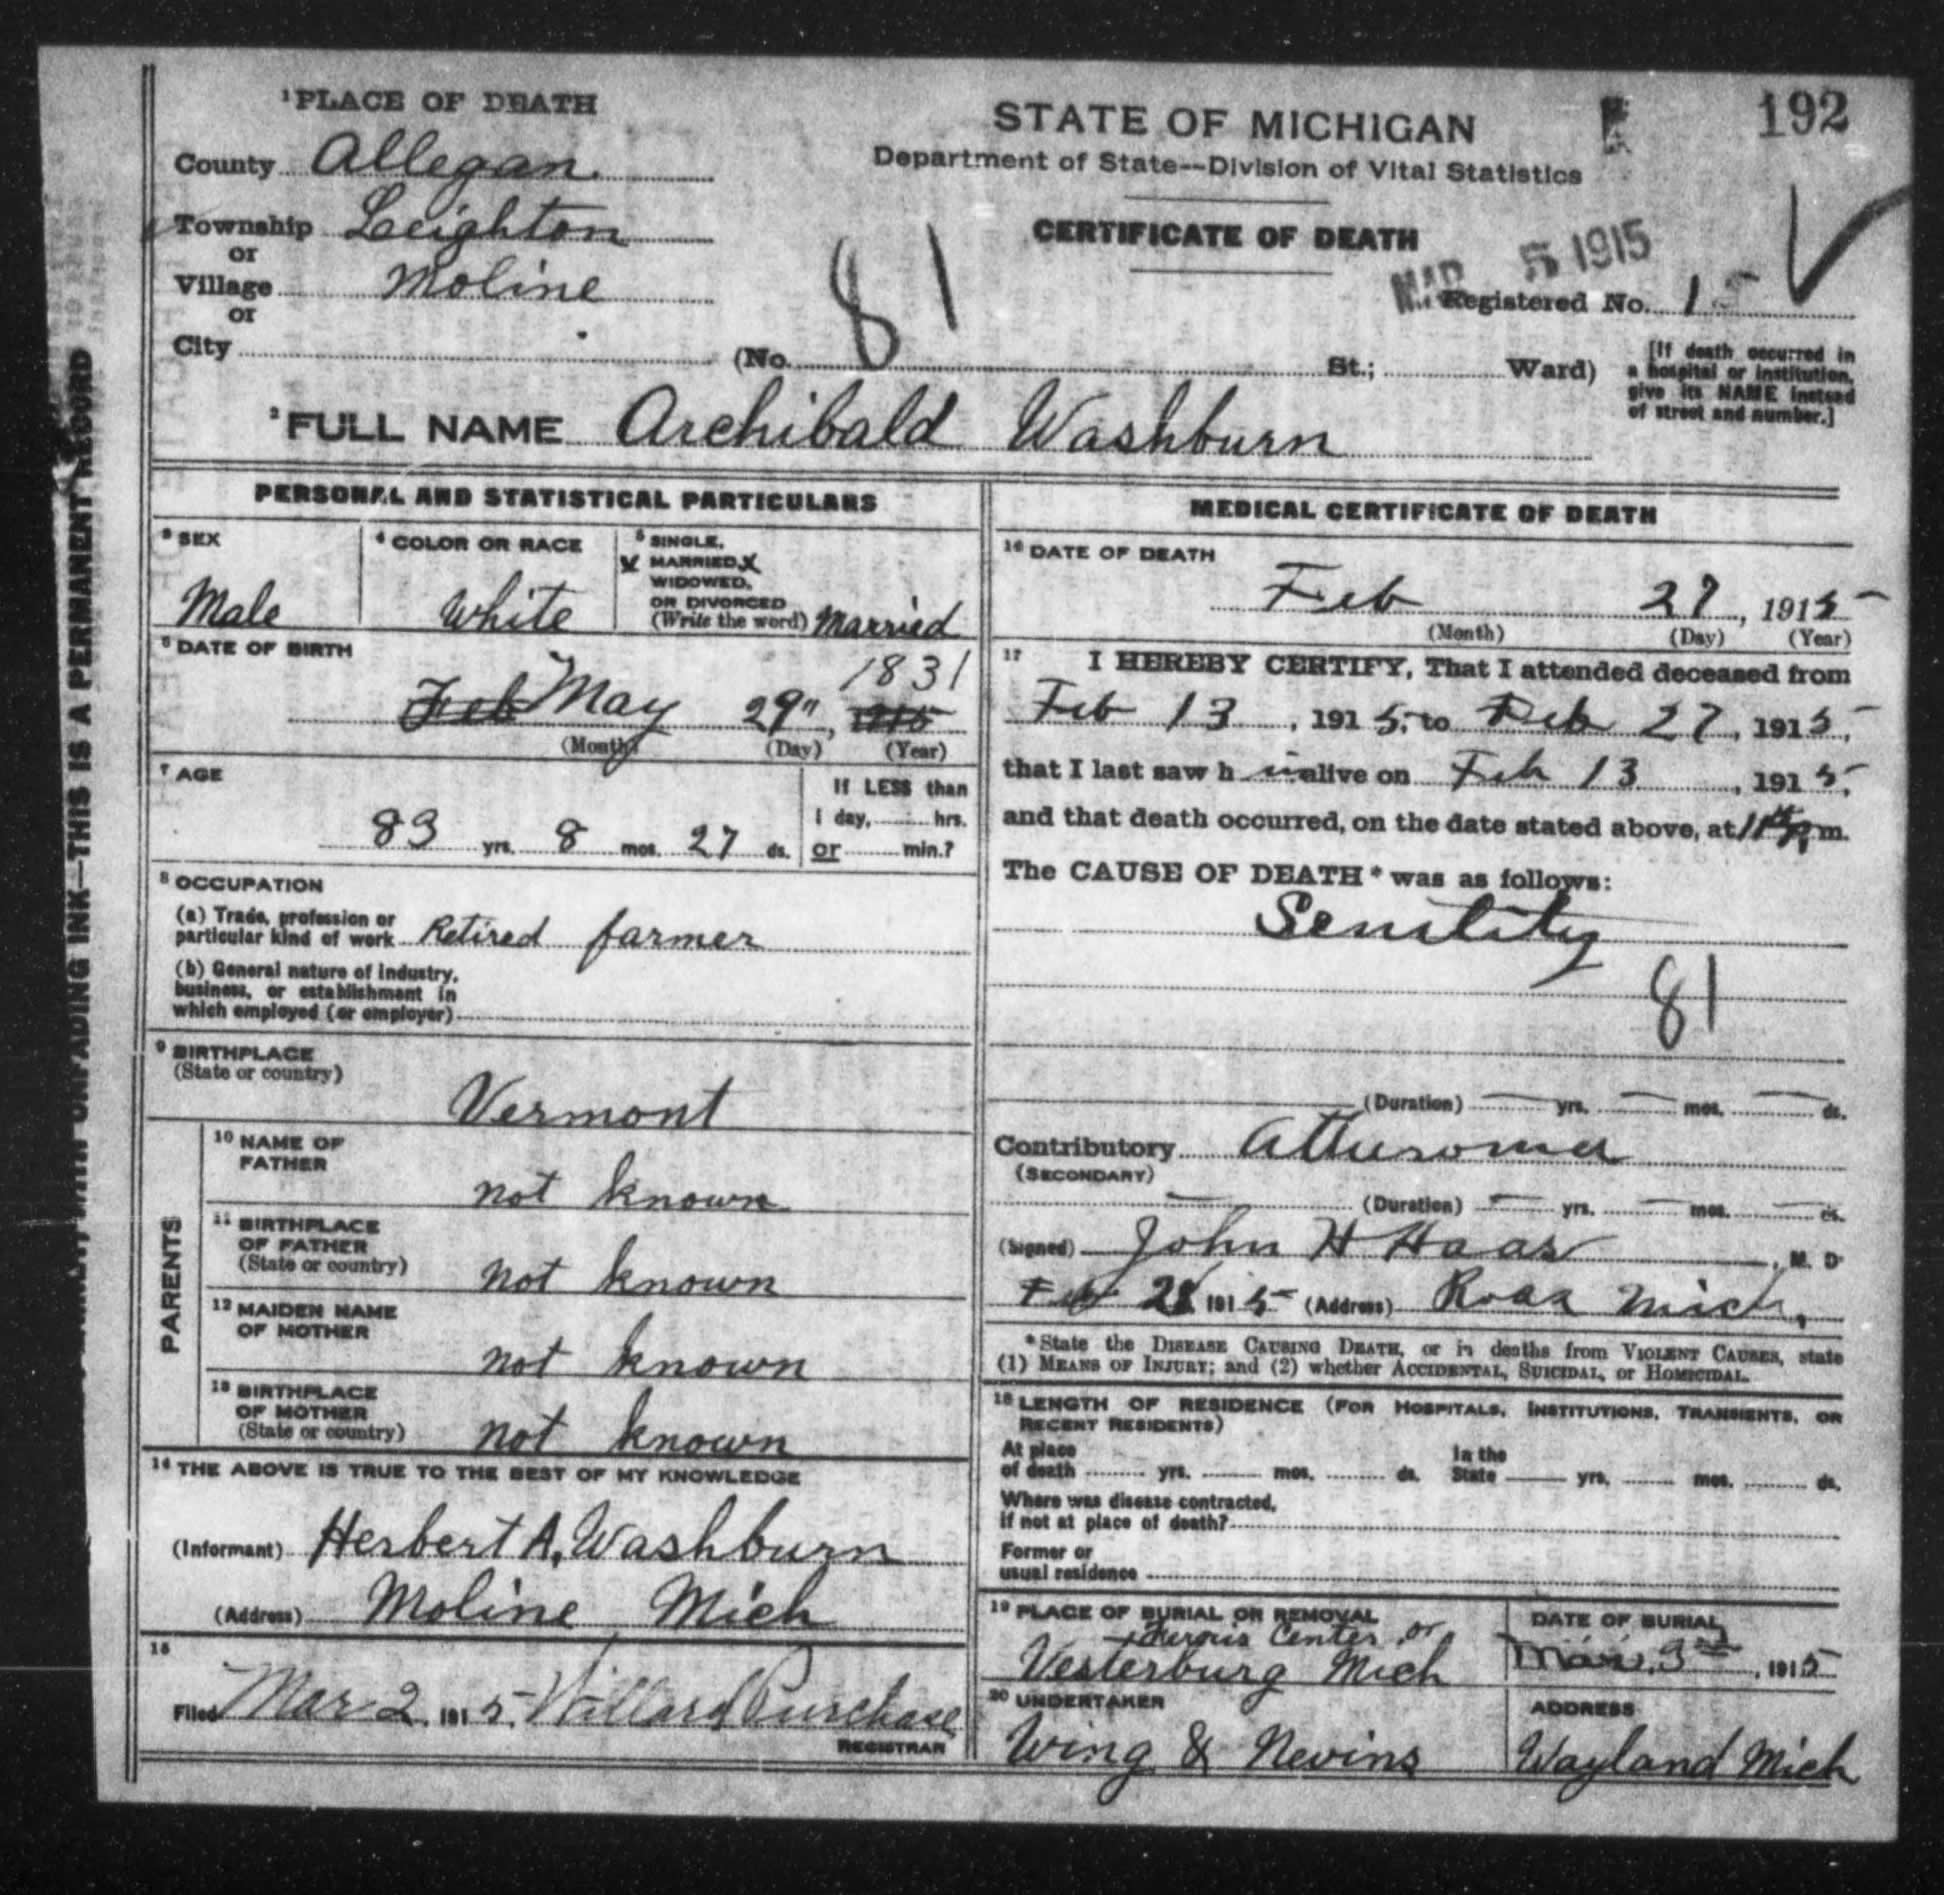 192
1 PLACE OF DEATH
County Allegan
Township Leighton
or
Village Moline
or
City (No. St.; Ward)
STATE OF MICHIGAN
Department of State--Division of Vital Statistics
CERTIFICATE OF DEATH
MAR 5 1915
Registered No. 1
81
[If death occurred in
a hospital or institution,
give its NAME instead
of street and number.]
2 FULL NAME Archibald Washburn
PERSONAL AND STATISTICAL PARTICULARS
3 SEX
Male
4 COLOR OR RACE
White
5 SINGLE,
MARRIED, X
WIDOWED,
OR DIVORCED
(Write the word) Married
6 DATE OF BIRTH
1831
Feb May 29", 1915
(Month) (Day) (Year)
7 AGE
83 yrs. 8 mos. 27 ds.
If LESS than
1 day, hrs.
or min.?
8 OCCUPATION
(a) Trade, profession or
particular kind of work Retired farmer
(b) General nature of industry,
business, or establishment in
which employed (or employer)
9 BIRTHPLACE
(State or country)
Vermont
PARENTS
10 NAME OF
FATHER
not known
11 BIRTHPLACE
OF FATHER
(State or country)
not known
12 MAIDEN NAME
OF MOTHER
not known
13 BIRTHPLACE
OF MOTHER
(State or country)
not known
14 THE ABOVE IS TRUE TO THE BEST OF MY KNOWLEDGE
(Informant) Herbert A. Washburn
(Address) Moline Mich
15
Filed Mar 2, 1915. Willard Purchase
REGISTRAR
MEDICAL CERTIFICATE OF DEATH
16 DATE OF DEATH
Feb 27, 1915
(Month) (Day) (Year)
17 I HEREBY CERTIFY, That I attended deceased from
Feb 13, 1915, to Feb 27, 1915,
that I last saw h im alive on Feb 13, 1915,
and that death occurred, on the date stated above, at 11 P m.
The CAUSE OF DEATH* was as follows:
Senility
81
(Duration) yrs. mos. ds.
Contributory
(SECONDARY)
(Duration) yrs. mos. ds.
(Signed) John H Haas, M. D.
Feb 28 1915 (Address) Ross Mich,
*State the DISEASE CAUSING DEATH, or in deaths from VIOLENT CAUSES, state
(1) MEANS OF INJURY; and (2) whether ACCIDENTAL, SUICIDAL, or HOMICIDAL.
18 LENGTH OF RESIDENCE (FOR HOSPITALS, INSTITUTIONS, TRANSIENTS, OR
RECENT RESIDENTS)
At place
of death yrs. mos. ds.
In the
State yrs. mos. ds.
Where was disease contracted,
if not at place of death?
Former or
usual residence
19 PLACE OF BURIAL OR REMOVAL
Center or
Vesterburg Mich
DATE OF BURIAL
Mar. 3rd, 1915
20 UNDERTAKER
Wing & Nevins
ADDRESS
Wayland Mich
UNFADING INK—THIS IS A PERMANENT RECORD